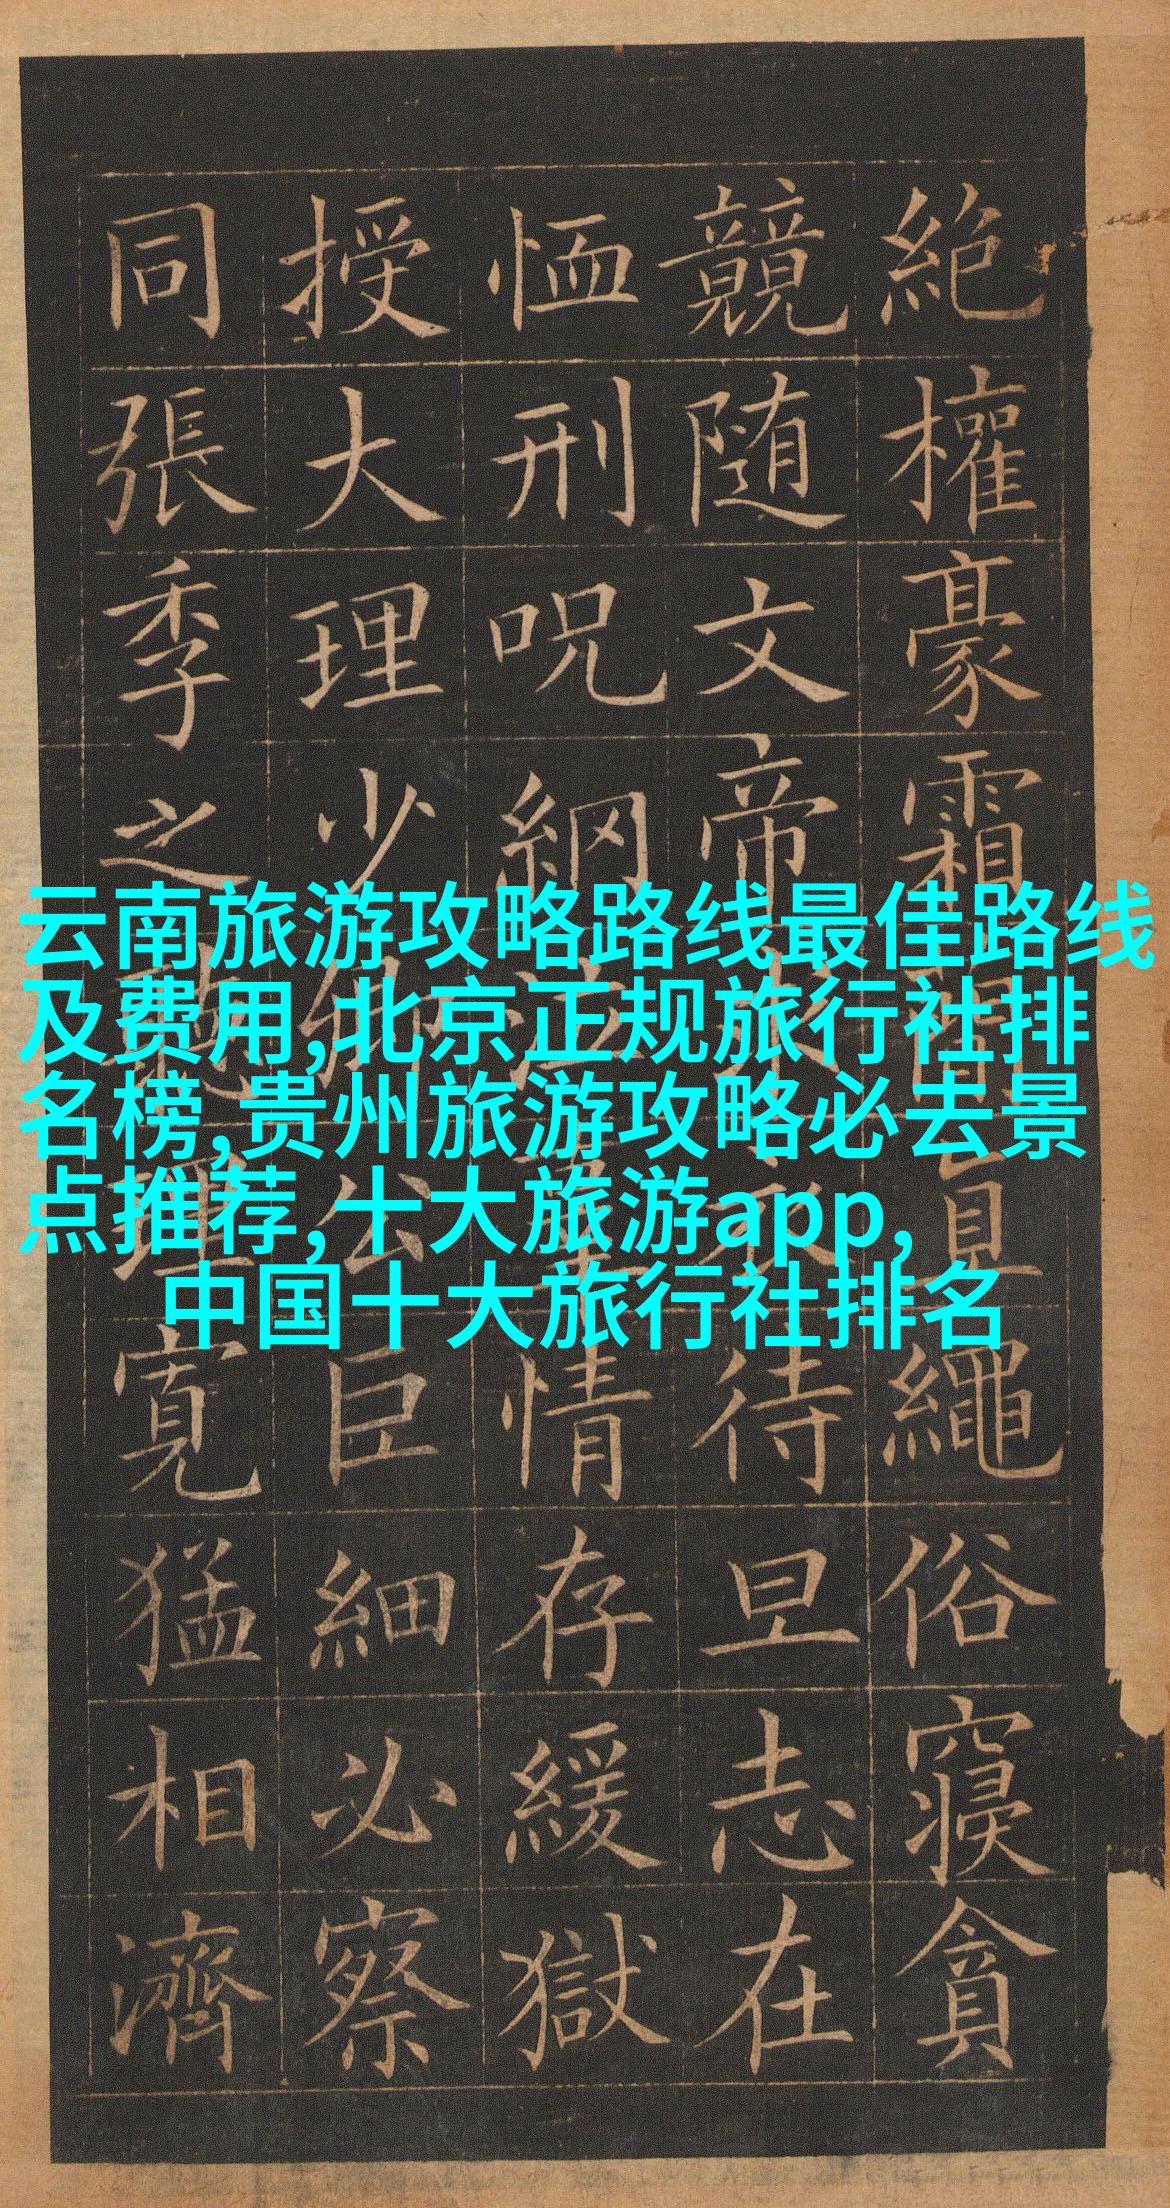 絶權豪霜繩俗寢貪
競随文帝求衣待旦志在
恤刑呪網泣辜情存緩獄
授大理少卿公巨細必察
同張季之聽理寬猛相濟
云南旅游攻略路线最佳路线
及费用,北京正规旅行社排
名榜,贵州旅游攻略必去景
点推荐,十大旅游app,
中国十大旅行社排名